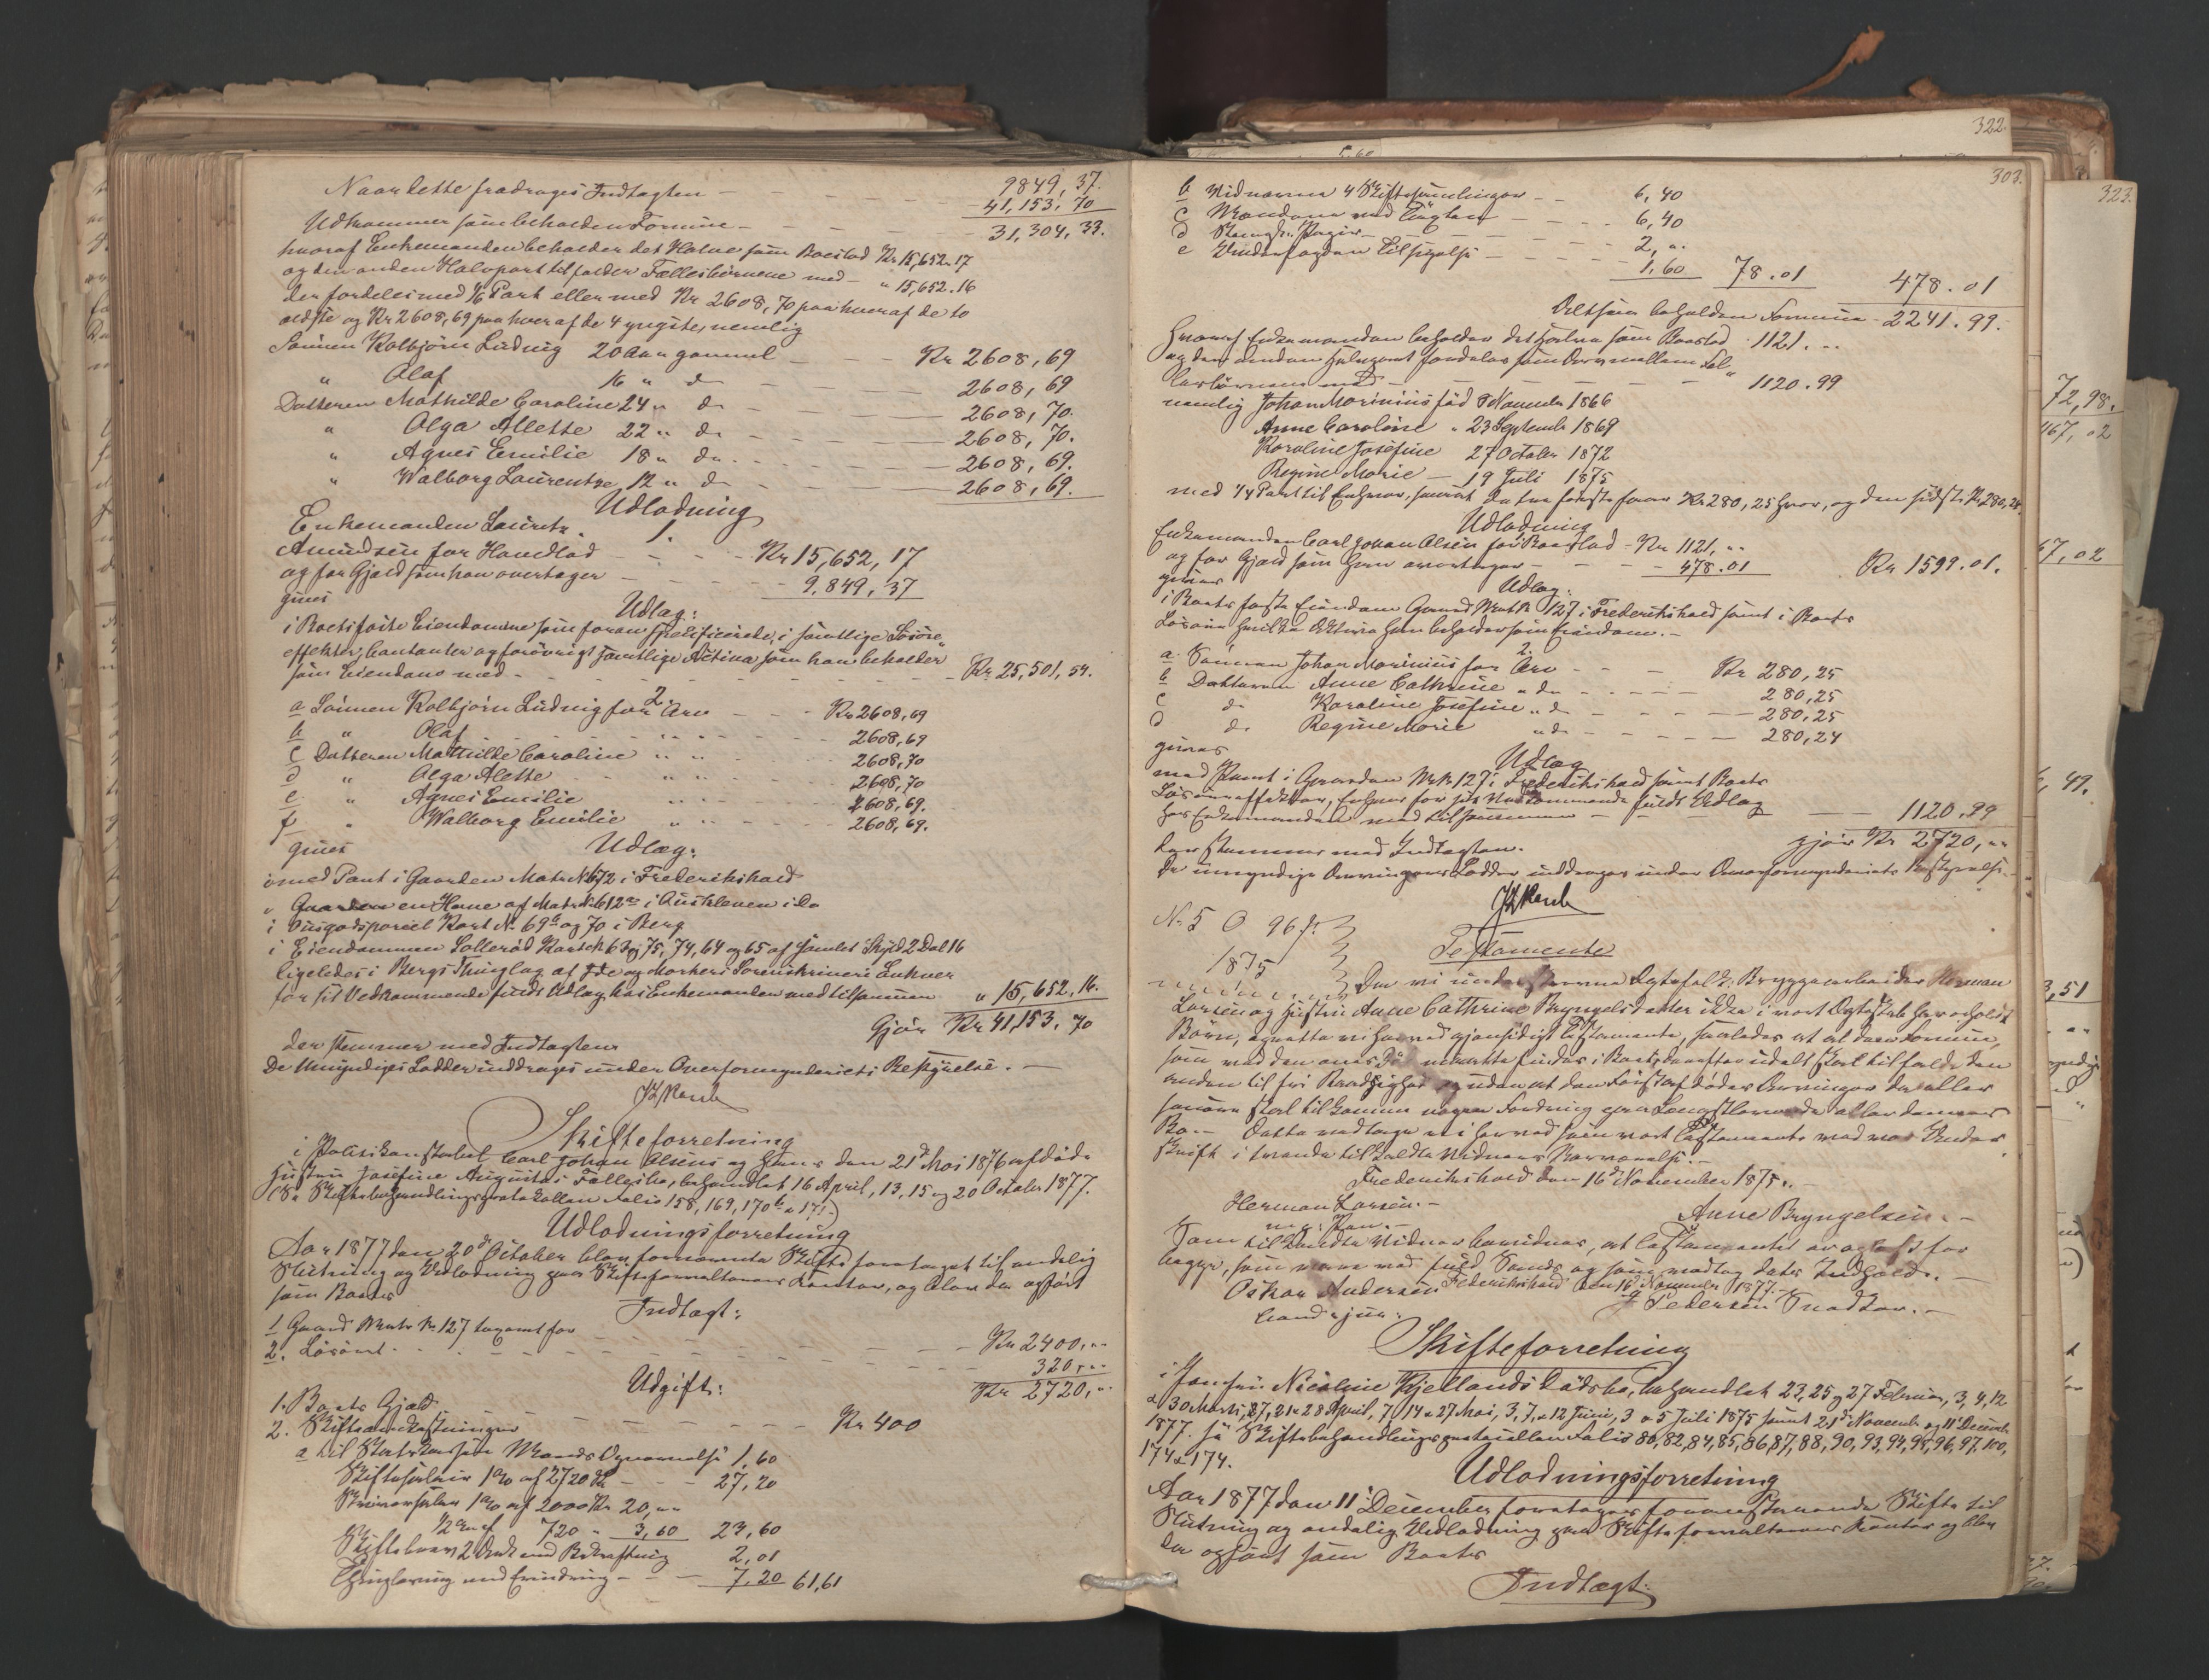 Naar dette fradrages Indtagten — 9849, 37.
41,153, 70
Udkommer som beholden Formue — 31,304, 33.
hvoraf Enkemanden beholder det Halve som Boeslod Kr 15,652.17
og den anden Halvpart tilfalder Fællesbørnene med — " 15,652.16
der fordeles med 1/6 Part eller med Kr 2608,70 paa hver af de to
ældste og Kr 2608,69 paa hver af de 4 yngste, nemlig
Sønnen Kolbjørn Ludvig 20 Aar gammel — Kr 2608,69
" Olaf 16 " do — 2608,69
Datteren Mathilde Caroline 24 " do — 2608,70.
" Olga Alette 22 " do — 2608,70.
" Agnes Emilie 18 " do — 2608,69.
" Walborg Laurentze 12 " do — 2608,69.
Udlodning
1.
Enkemanden Lauritz
Amundsen for Hovedlod — Kr 15,652,17
og for Gjæld som han overtager — 9,849,37
gives
Udlæg:
i Boets faste Eiendomme som foran specificerede, i samtlige Løsøre
effekter, Contanter og forøvrigt samtlige Activa som han beholder
som Eiendom med — Kr 25,501,54.
2.
a Sønnen Kolbjørn Ludvig for Arv — Kr 2608,69
b " Olaf " " 2608,69
c Datteren Mathilde Caroline " " 2608,70
d " Olga Alette " " 2608,70
e " Agnes Emilie " " 2608,69.
f " Walborg Emilie " " 2608,69.
gives
Udlæg:
med Pant i Gaarden Matr No 672 i Frederikshald
" en Have af Matr No 612 a i do
i Kart No 69 b og 70 i Berg
i Eiendommen Sollerød Kart No 63, 75, 74, 64 og 65 af samlet Skyld 2 Dal 16
ligeledes i Bergs Thinglag af Ide og Markers Sorenskriveri Enhver
for sit Vedkommende fuldt Udlæg hos Enkemanden med tilsammen " 15,652,16.
Gjør Kr 41,153. 70
der stemmer med Indtægten
De Umyndiges Lodder inddrages under Overformynderiets Bestyrelse. —
Skifteforretning
i Politikonstabel Carl Johan Olsens og Hans den 21de Mai 1876 afdøde
Hustru Josefine Augustas Fællesbo, behandlet 16 April, 13, 15 og 20 October 1877.
(Se Skiftebehandlingsprotokollen Folio 158, 169, 170 b & 171)
Udlodningsforretning
Aar 1877 den 20de October blev fornævnte Skifte foretaget til endelig
Slutning og Udlodning paa Skifteforvalterens Kontor, og blev da opført
som Boets
Indtægt:
1 Gaard Matr No 127 taxeret for — Kr 2400, "
2. Løsøret — 320, "
Kr 2720, "
Udgift:
1. Boets Gjæld — Kr 400
2. Skifteomkostninger
a til Statskassen Mænds Opnævnelse 1,60
Skiftesalær 1% af 2720 Kr — 27,20
Skriversalær 1% af 2000 Kr 20, "
1/2 % af 720 " 3,60 23,60
Skiftebrev 2 Ark med Bekræftning 2,01
Thinglæsning med Erindring — 7.20 61,61
322.
303.
323.
b Vidnerne 4 Skiftesamlinger — 6,40
c Mændene ved Taxten — 6,40
d Stemplet Papir — 2, "
e Underfogden Tilsigelse — 1,60 78.01 478.01
Altsaa beholden Formue 2241.99.
hvoraf Enkemanden beholder det Halve som Boeslod 1121. "
og den anden Halvpart fordeles som Arv mellem Fæl
lesbørnene med — 1120.99
nemlig Johan Marinius fød 8 November 1866
Anne Caroline " 23 September 1869
Karoline Josefine 27 October 1872
Regine Marie — 19 Juli 1875
med 1/4 Part til Enhver, saaat de tre første faar Kr 280,25 hver, og den sidste Kr 280,24.
Udlodning
Enkemanden Carl Johan Olsen for Boeslod — Kr 1121, "
og for Gjæld som han overtager — 478.01 Kr 1599.01.
gives
Udlæg:
i Boets faste Eiendom Gaard Matr No 127 i Frederikshald samt i Boets
Løsøre hvilke Aktiva han beholder som Eiendom. —
2.
a. Sønnen Johan Marinius for Arv — Kr 280,25
b Datteren Anne Cathrine " do — 280,25
c do Karoline Josefine " do — 280,25
d do Regine Marie " do — 280,24
gives
Udlæg
med Pant i Gaarden Mr No 127 i Frederikshald samt Boets
Løsøreeffekter, Enhver for sit Vedkommende fuldt Udlæg
hos Enkemanden med tilsammen — 1120.99
gjør Kr 2720, "
der stemmer med Indtægten.
De umyndige Arvingers Lodder inddrages under Overformynderiets Bestyrelse. —
No 5
1875
Testamente
Da vi underskrevne Ægtefolk: Bryggearbeider Herman
Larsen og Hustru Anne Cathrine Bryngelsdatter ikke i vort Ægteskab have avlet
Børn, oprette vi herved gjensidigt Testamente, saaledes at al den Formue,
som ved den enes Død maatte findes i Boet, derefter udelt skal tilfalde den
anden til fri Raadighed og uden at den Førstafdødes Arvinger da eller
senere skal tilkomme nogen Fordring paa Længstlevende eller dennes
Bo. — Dette vedtage vi herved som vort Testamente med vor Under
skrift i tvende tilkaldte Vidners Nærværelse. —
Frederikshald den 16de November 1875. —
Herman Larsen. — Anne Bryngelsen. —
m. p. Pen. —
Som tilkaldte Vidner bevidnes, at Testamentet er oplæst for
begge, som vare ved fuld Sands og som vedtog dets Indhold. —
Frederikshald den 16de November 1877.
Oskar Andersen J Pedersen Snedker. —
Cand. jur.
Skifteforretning
i Jomfru Nicoline Kjellands Dødsbo, behandlet 23, 25 og 27 Februar, 3, 4, 12
& 30 Marts, 17, 21 & 28 April, 7, 14 & 27 Mai, 3, 7, & 12 Juni, 3 & 5 Juli 1875 samt 21de November og 11 December
1877. se Skiftebehandlingsprotocollen Folio 80, 82, 84, 85, 86, 87, 88, 90, 93, 94, 95, 96, 97, 100,
174 & 174.
Udlodningsforretning
Aar 1877 den 11 December foretages foranstaaende Skifte til
Slutning og endelig Udlodning paa Skifteforvalterens Kontor og blev
da opført som Boets
Indtægt: